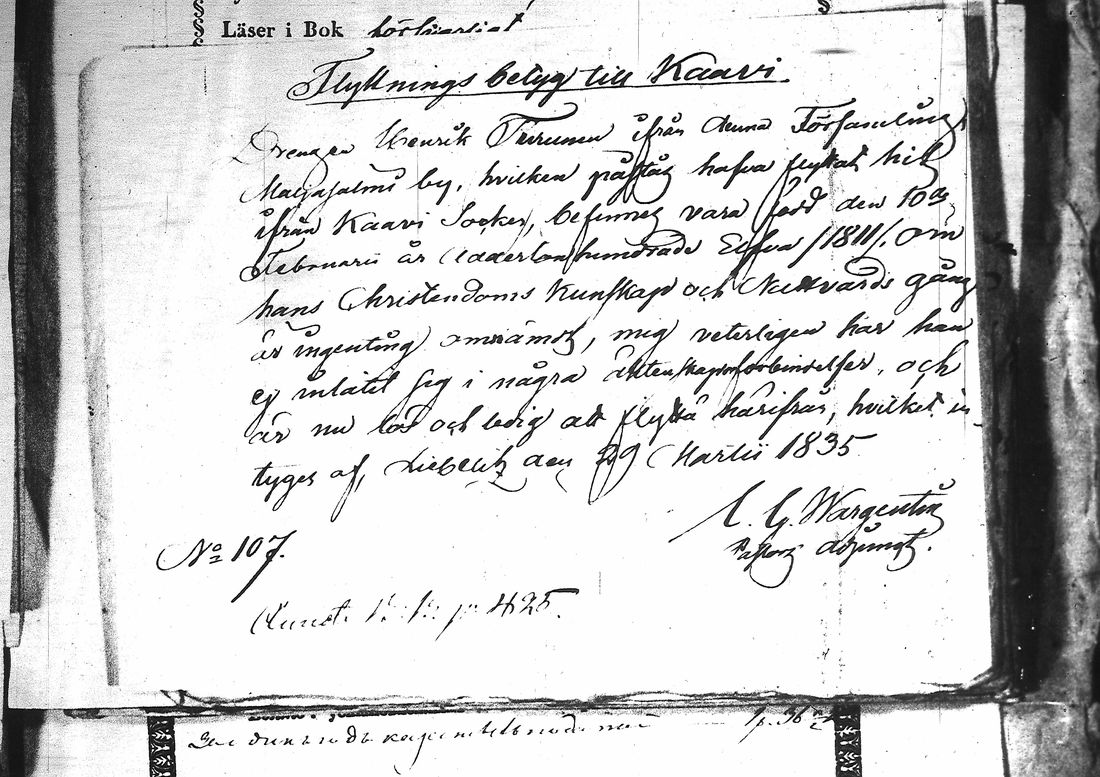 Läser i Bok försvarligt
Flyttnings betyg till Kaavi.
Drengen Henrik Turunen ifrån denna Församling,
Maljasalmi by, hvilken påstås hafva flyttat hit
ifrån Kaavi Socken, befinnes vara född den 10de
Februarii år Adderton hundrade Elfva /1811/. Om
hans Christendoms Kunskap och Nattvards gång
är ingenting omnämdt, mig veterligen har han
ej inlåtit sig i några äktenskapsförbindelser, och
är nu lös och ledig att flytta härifrån, hvilket in
tyges af, Liebelitz den 29 Martii 1835
C. G. Wargentin
Pastors adjunct.
No 107.
p 425.